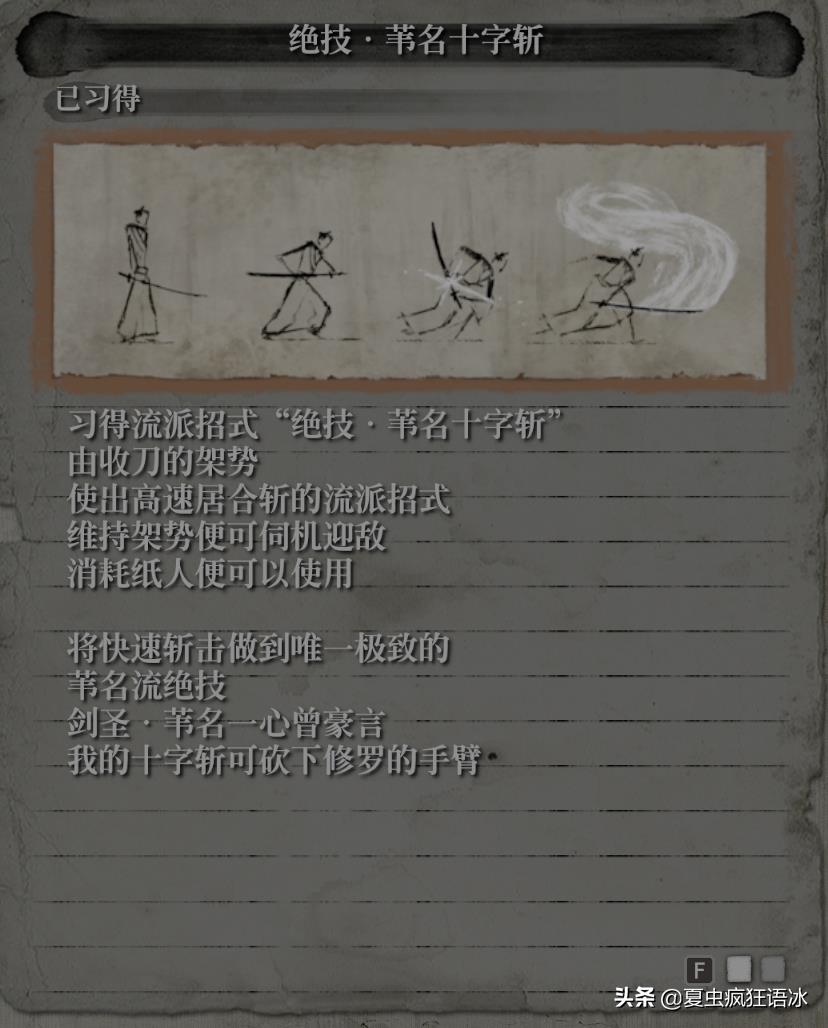 绝技·苇名十字斩
已习得
习得流派招式“绝技·苇名十字斩”
由收刀的架势
使出高速居合斩的流派招式
维持架势便可伺机迎敌
消耗纸人便可以使用
将快速斩击做到唯一极致的
苇名流绝技
剑圣·苇名一心曾豪言
我的十字斩可砍下修罗的手臂
F
头条 @夏虫疯狂语冰